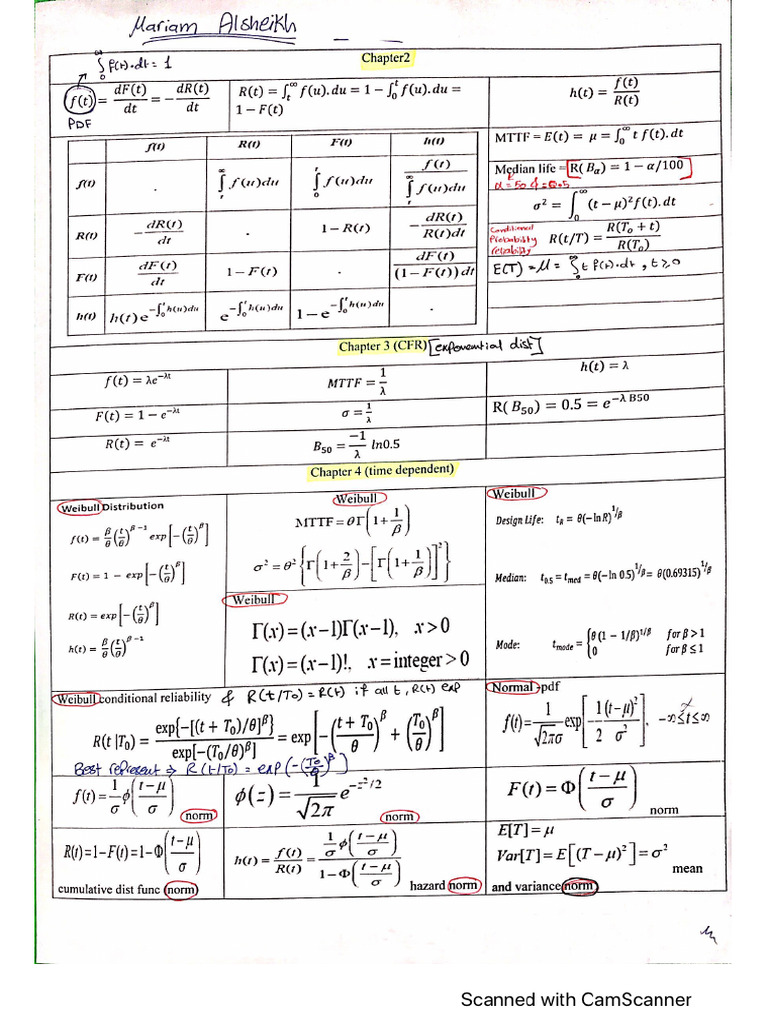 Mariam Alsheikh
∫₀^∞ f(t).dt = 1
Chapter2
f(t) = dF(t)/dt = − dR(t)/dt
PDF
R(t) = ∫ₜ^∞ f(u).du = 1 − ∫₀ᵗ f(u).du =
1 − F(t)
h(t) = f(t)/R(t)
f(t) R(t) F(t) h(t)
f(t) . ∫ₜ^∞ f(u)du ∫₀ᵗ f(u)du f(t)/∫ₜ^∞ f(u)du
R(t) − dR(t)/dt . 1 − R(t) − dR(t)/R(t)dt
F(t) dF(t)/dt 1 − F(t) . dF(t)/(1 − F(t))dt
h(t) h(t)e^(−∫₀ᵗ h(u)du) e^(−∫₀ᵗ h(u)du) 1 − e^(−∫₀ᵗ h(u)du) .
MTTF = E(t) = μ = ∫₀^∞ t f(t).dt
Median life = R( B_α) = 1 − α/100
α = 50
σ² = ∫₀^∞ (t − μ)² f(t).dt
Conditional
Probability
reliability
R(t/T) = R(T₀ + t)/R(T₀)
E(T) = μ = ∫₀^∞ t f(t).dt , t ≥ 0
Chapter 3 (CFR) [exponential dist]
f(t) = λe^(−λt)
MTTF = 1/λ
h(t) = λ
F(t) = 1 − e^(−λt)
σ = 1/λ
R( B₅₀) = 0.5 = e^(−λ B50)
R(t) = e^(−λt)
B₅₀ = −1/λ ln0.5
Chapter 4 (time dependent)
Weibull Distribution
f(t) = β/θ (t/θ)^(β−1) exp[−(t/θ)^β]
F(t) = 1 − exp[−(t/θ)^β]
R(t) = exp[−(t/θ)^β]
h(t) = β/θ (t/θ)^(β−1)
Weibull
MTTF = θ Γ(1 + 1/β)
σ² = θ² {Γ(1 + 2/β) − [Γ(1 + 1/β)]²}
Weibull
Γ(x) = (x−1)Γ(x−1), x > 0
Γ(x) = (x−1)!, x = integer > 0
Weibull
Design Life: t_R = θ(−ln R)^(1/β)
Median: t₀.₅ = t_med = θ(−ln 0.5)^(1/β) = θ(0.69315)^(1/β)
Mode: t_mode = {θ(1 − 1/β)^(1/β) for β > 1
0 for β ≤ 1
Weibull conditional reliability & R(t/T₀) = R(t) if all t, R(t) exp
R(t |T₀) = exp{−[(t + T₀)/θ]^β}/exp[−(T₀/θ)^β] = exp[−((t + T₀)/θ)^β + (T₀/θ)^β]
Best represent ⇒ R(t/T₀) = exp(−(T₀/θ)^β)
Normal pdf
f(t) = 1/(√2πσ) exp[−1/2 (t−μ)²/σ²], −∞ ≤ t ≤ ∞
f(t) = 1/σ ϕ((t − μ)/σ)
norm
ϕ(z) = 1/√2π e^(−z²/2)
norm
F(t) = Φ((t − μ)/σ)
norm
R(t) = 1−F(t) = 1−Φ((t−μ)/σ)
cumulative dist func norm
h(t) = f(t)/R(t) = 1/σ ϕ((t − μ)/σ) / 1 − Φ((t − μ)/σ)
hazard norm
E[T] = μ
Var[T] = E[(T − μ)²] = σ²
mean
and variance norm
Scanned with CamScanner